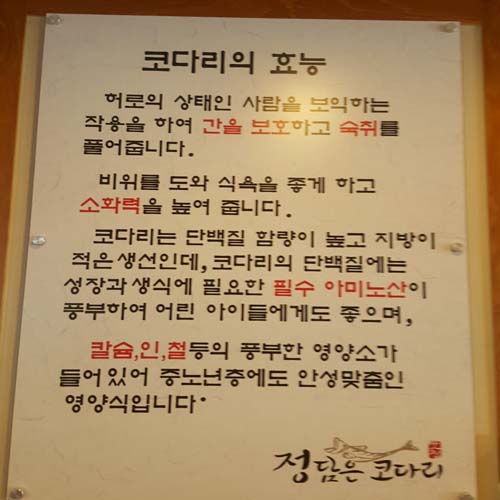 코다리의 효능
허로의 상태인 사람을 보익하는
작용을 하여 간을 보호하고 숙취를
풀어줍니다.
비위를 도와 식욕을 좋게 하고
소화력을 높여 줍니다.
코다리는 단백질 함량이 높고 지방이
적은생선인데,코다리의 단백질에는
성장과생식에 필요한 필수 아미노산이
풍부하여 어린 아이들에게도 좋으며,
칼슘,인,철등의 풍부한 영양소가
들어있어 중노년층에도 안성맞춤인
영양식입니다.
정담은 코다리